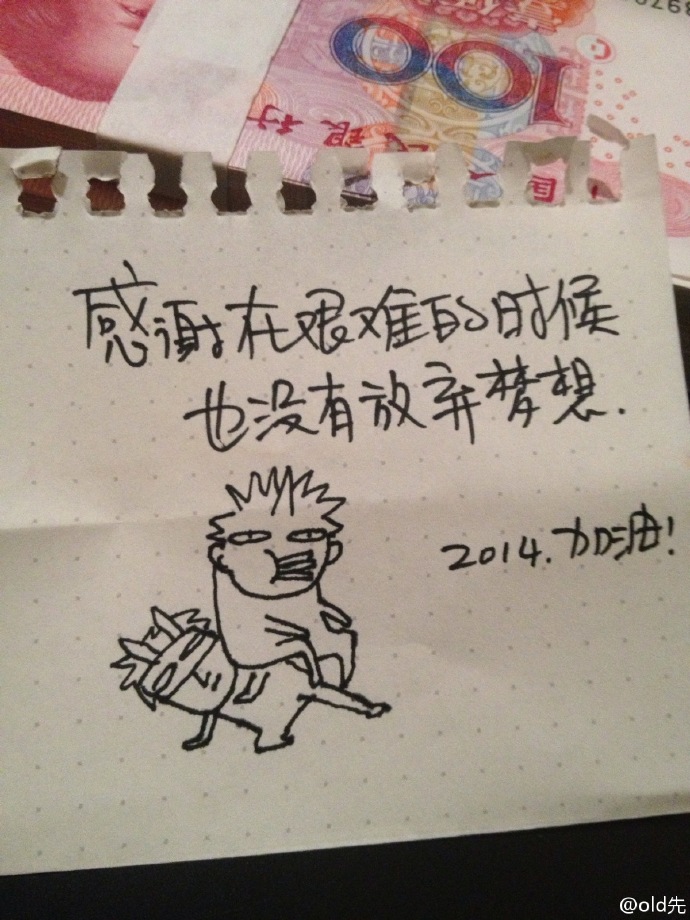 100
感谢在艰难的时候
也没有放弃梦想.
2014.加油!
@old先